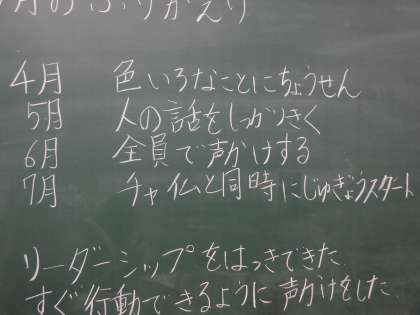 月のふりかえり
4月 色いろなことにちょうせん
5月 人の話をしっかりきく
6月 全員で声かけする
7月 チャイムと同時にじゅぎょうスタート
リーダーシップをはっきできた
すぐ行動できるように声かけをした